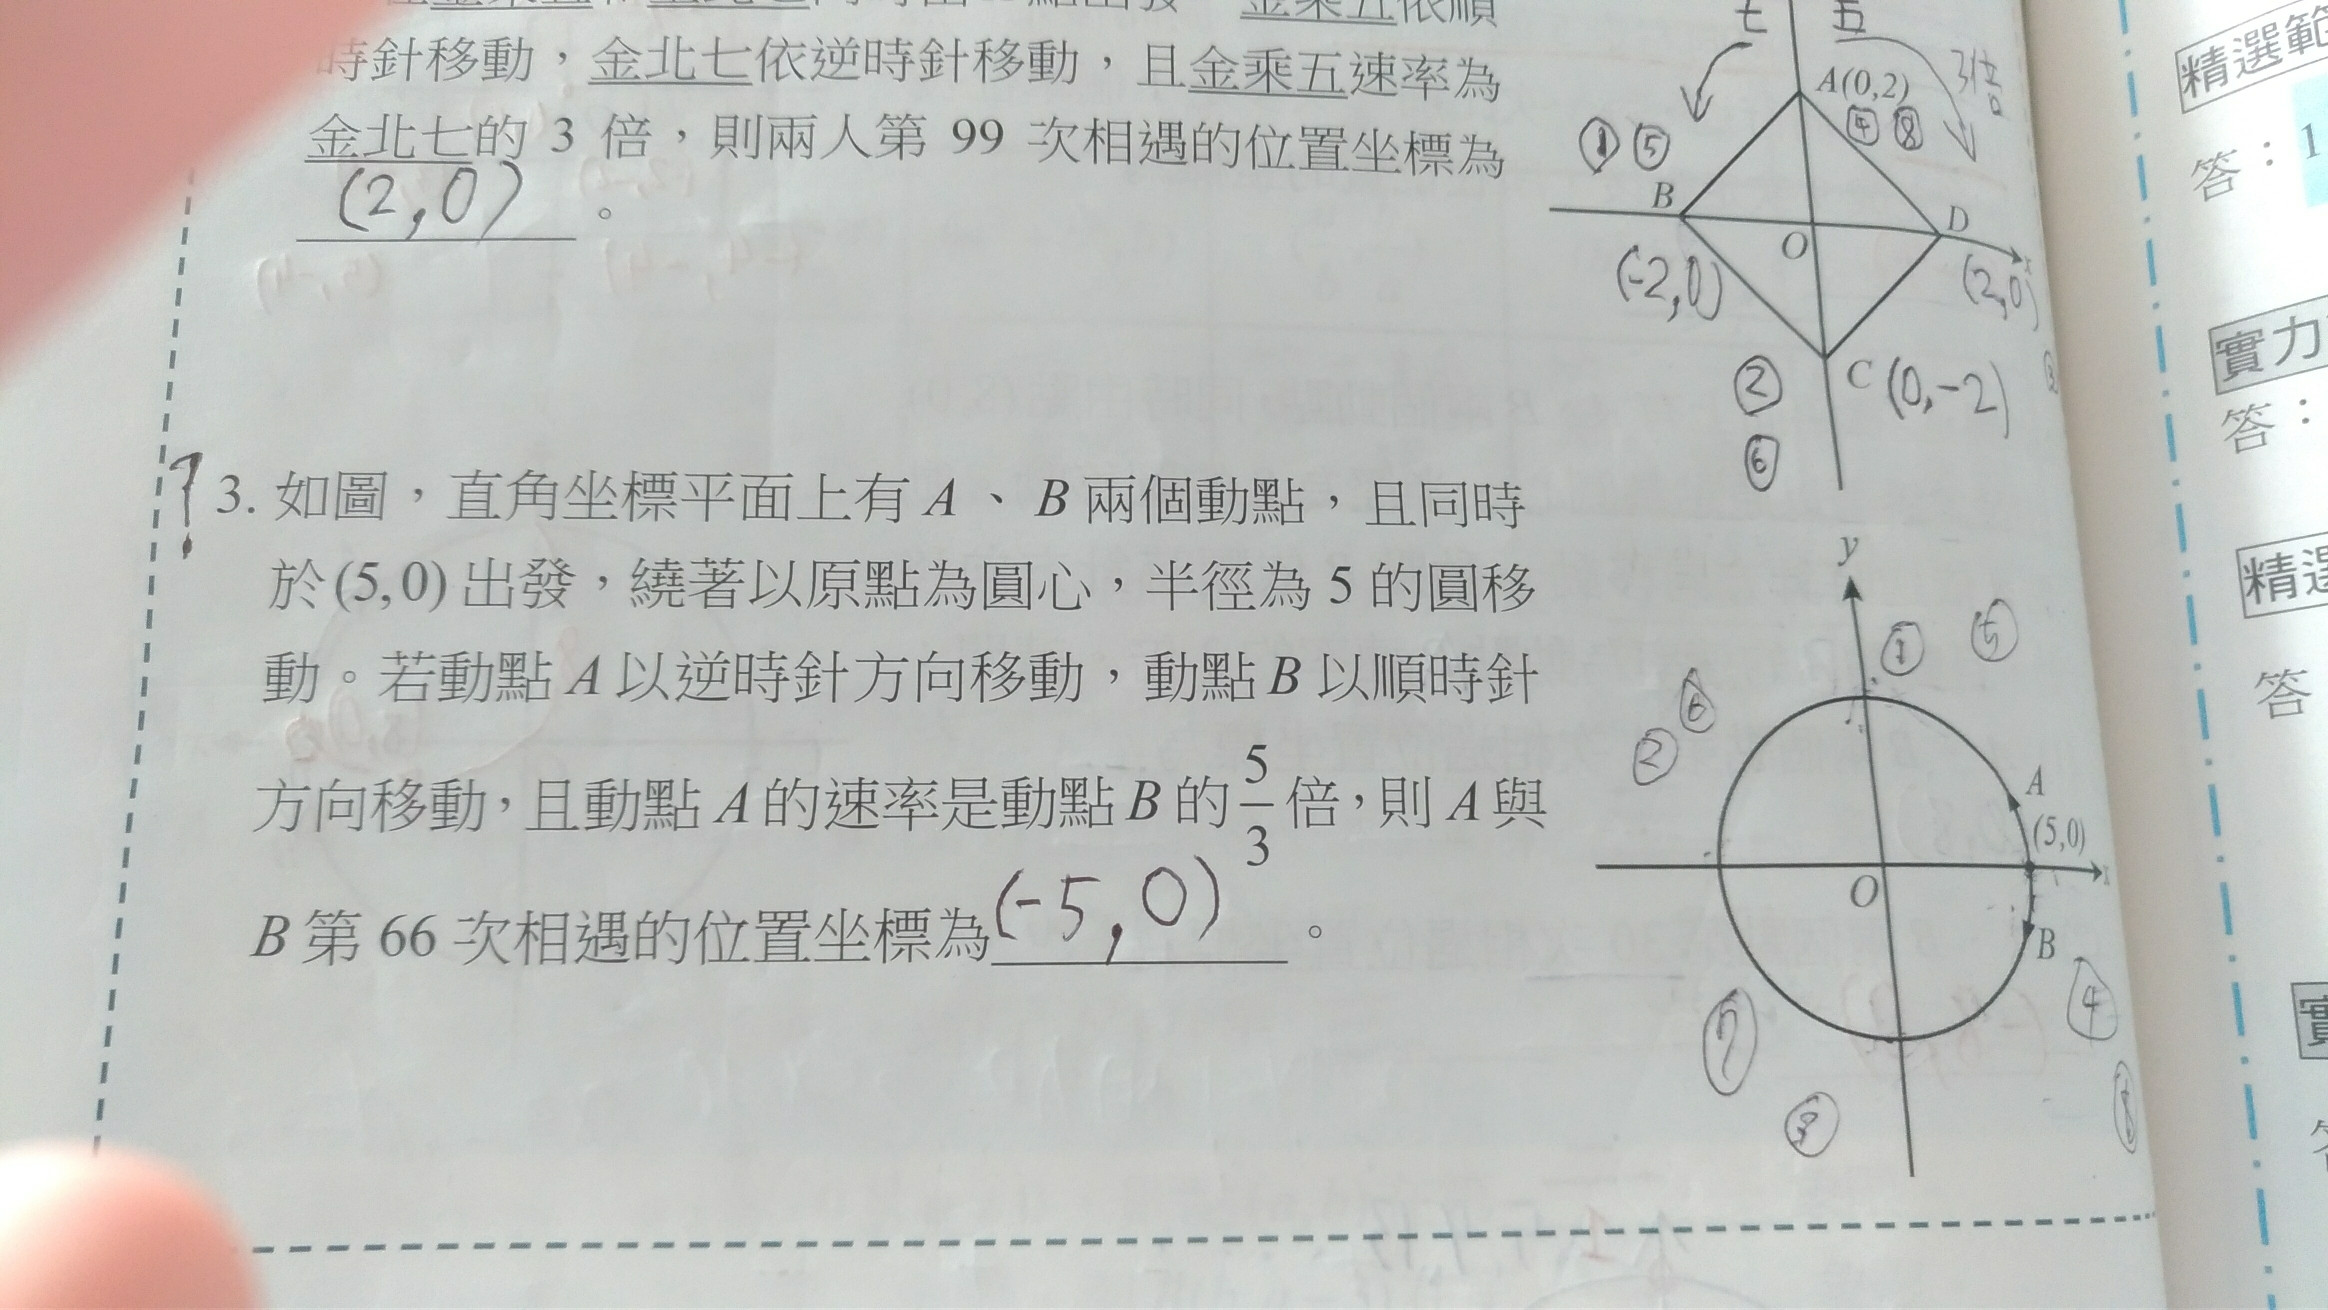 時針移動，金北七依逆時針移動，且金乘五速率為
金北七的 3 倍，則兩人第 99 次相遇的位置坐標為
(2,0)。
七 五
3倍
A(0,2)
④ ⑧
① ⑤
B
D
O
(-2,0)
(2,0)
②
C (0,-2)
⑥
? 3. 如圖，直角坐標平面上有 A、B 兩個動點，且同時
於(5,0)出發，繞著以原點為圓心，半徑為 5 的圓移
動。若動點 A 以逆時針方向移動，動點 B 以順時針
方向移動，且動點 A 的速率是動點 B 的 5/3 倍，則 A 與
B 第 66 次相遇的位置坐標為(-5,0)。
y
① ⑤
⑥
②
A
(5,0)
x
O
B
④
⑦
③
⑧
精選範
答：1
實力
答：
精選
答
實